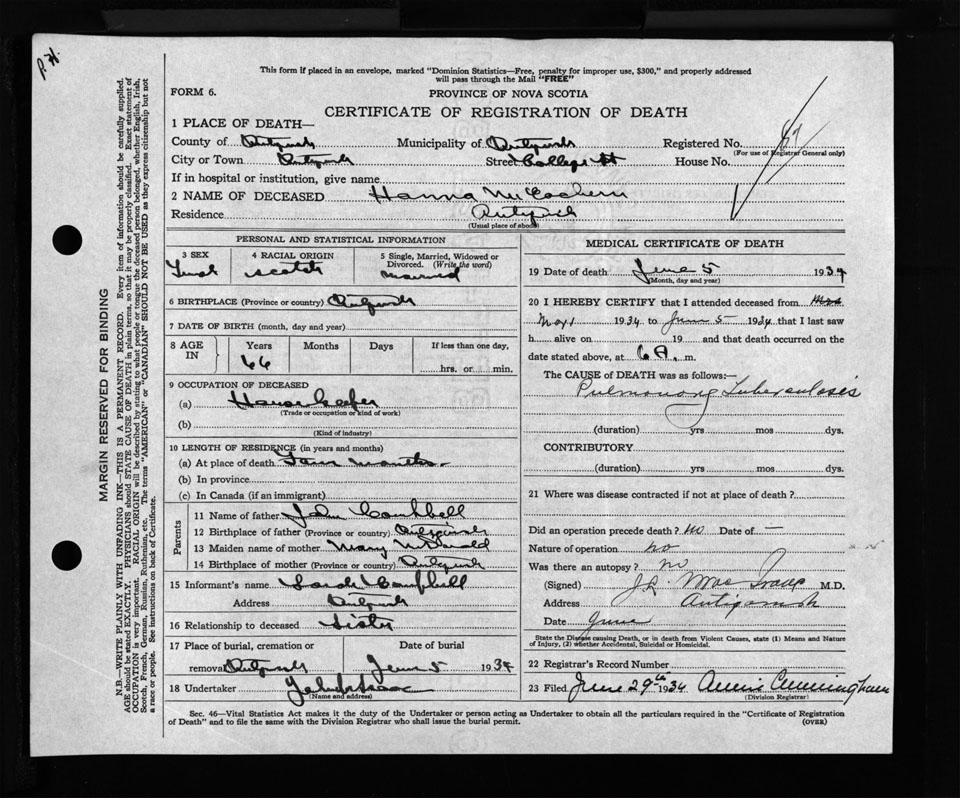 P.H.
This form if placed in an envelope, marked "Dominion Statistics—Free, penalty for improper use, $300," and properly addressed
will pass through the Mail "FREE"
FORM 6.
PROVINCE OF NOVA SCOTIA
CERTIFICATE OF REGISTRATION OF DEATH
1 PLACE OF DEATH—
County of Antigonish Municipality of Antigonish Registered No. 87
(For use of Registrar General only)
City or Town Antigonish Street College St House No.
If in hospital or institution, give name
2 NAME OF DECEASED Hanna McEachern
Residence Antigonish
(Usual place of abode)
PERSONAL AND STATISTICAL INFORMATION
3 SEX 4 RACIAL ORIGIN 5 Single, Married, Widowed or
Divorced. (Write the word)
Scotch married
6 BIRTHPLACE (Province or country) Antigonish
7 DATE OF BIRTH (month, day and year)
8 AGE IN Years Months Days If less than one day,
66 hrs. or min.
9 OCCUPATION OF DECEASED
(a) Housekeeper
(Trade or occupation or kind of work)
(b)
(Kind of industry)
10 LENGTH OF RESIDENCE (in years and months)
(a) At place of death months
(b) In province
(c) In Canada (if an immigrant)
Parents
11 Name of father John Campbell
12 Birthplace of father (Province or country) Antigonish
13 Maiden name of mother Mary
14 Birthplace of mother (Province or country) Antigonish
15 Informant's name Sarah Campbell
Address Antigonish
16 Relationship to deceased Sister
17 Place of burial, cremation or Date of burial
removal Antigonish June 5 1934
18 Undertaker
(Name and address)
MEDICAL CERTIFICATE OF DEATH
19 Date of death June 5 1934
(Month, day and year)
20 I HEREBY CERTIFY that I attended deceased from
1934 to June 5 1934 that I last saw
h alive on 19 and that death occurred on the
date stated above, at 6 A. m.
The CAUSE of DEATH was as follows:—
Pulmonary Tuberculosis
(duration) yrs mos dys.
CONTRIBUTORY
(duration) yrs mos dys.
21 Where was disease contracted if not at place of death?
Did an operation precede death? no Date of —
Nature of operation no
Was there an autopsy? no
(Signed) M.D.
Address Antigonish
Date June
State the Disease causing Death, or in death from Violent Causes, state (1) Means and Nature
of Injury, (2) whether Accidental, Suicidal or Homicidal.
22 Registrar's Record Number
23 Filed June 29th 1934 Annie Cunningham
(Division Registrar)
Sec. 46—Vital Statistics Act makes it the duty of the Undertaker or person acting as Undertaker to obtain all the particulars required in the "Certificate of Registration
of Death" and to file the same with the Division Registrar who shall issue the burial permit. (OVER)
MARGIN RESERVED FOR BINDING
N.B.—WRITE PLAINLY WITH UNFADING INK—THIS IS A PERMANENT RECORD. Every item of information should be carefully supplied.
AGE should be stated EXACTLY. PHYSICIANS should STATE CAUSE OF DEATH in plain terms, so that it may be properly classified. Exact statement of
OCCUPATION is very important. RACIAL ORIGIN will be described by stating to what people or tongue the deceased person belonged, whether English, Irish,
Scotch, French, German, Russian, Ruthenian, etc. The terms "AMERICAN" or "CANADIAN" SHOULD NOT BE USED as they express citizenship but not
a race or people. See instructions on back of Certificate.